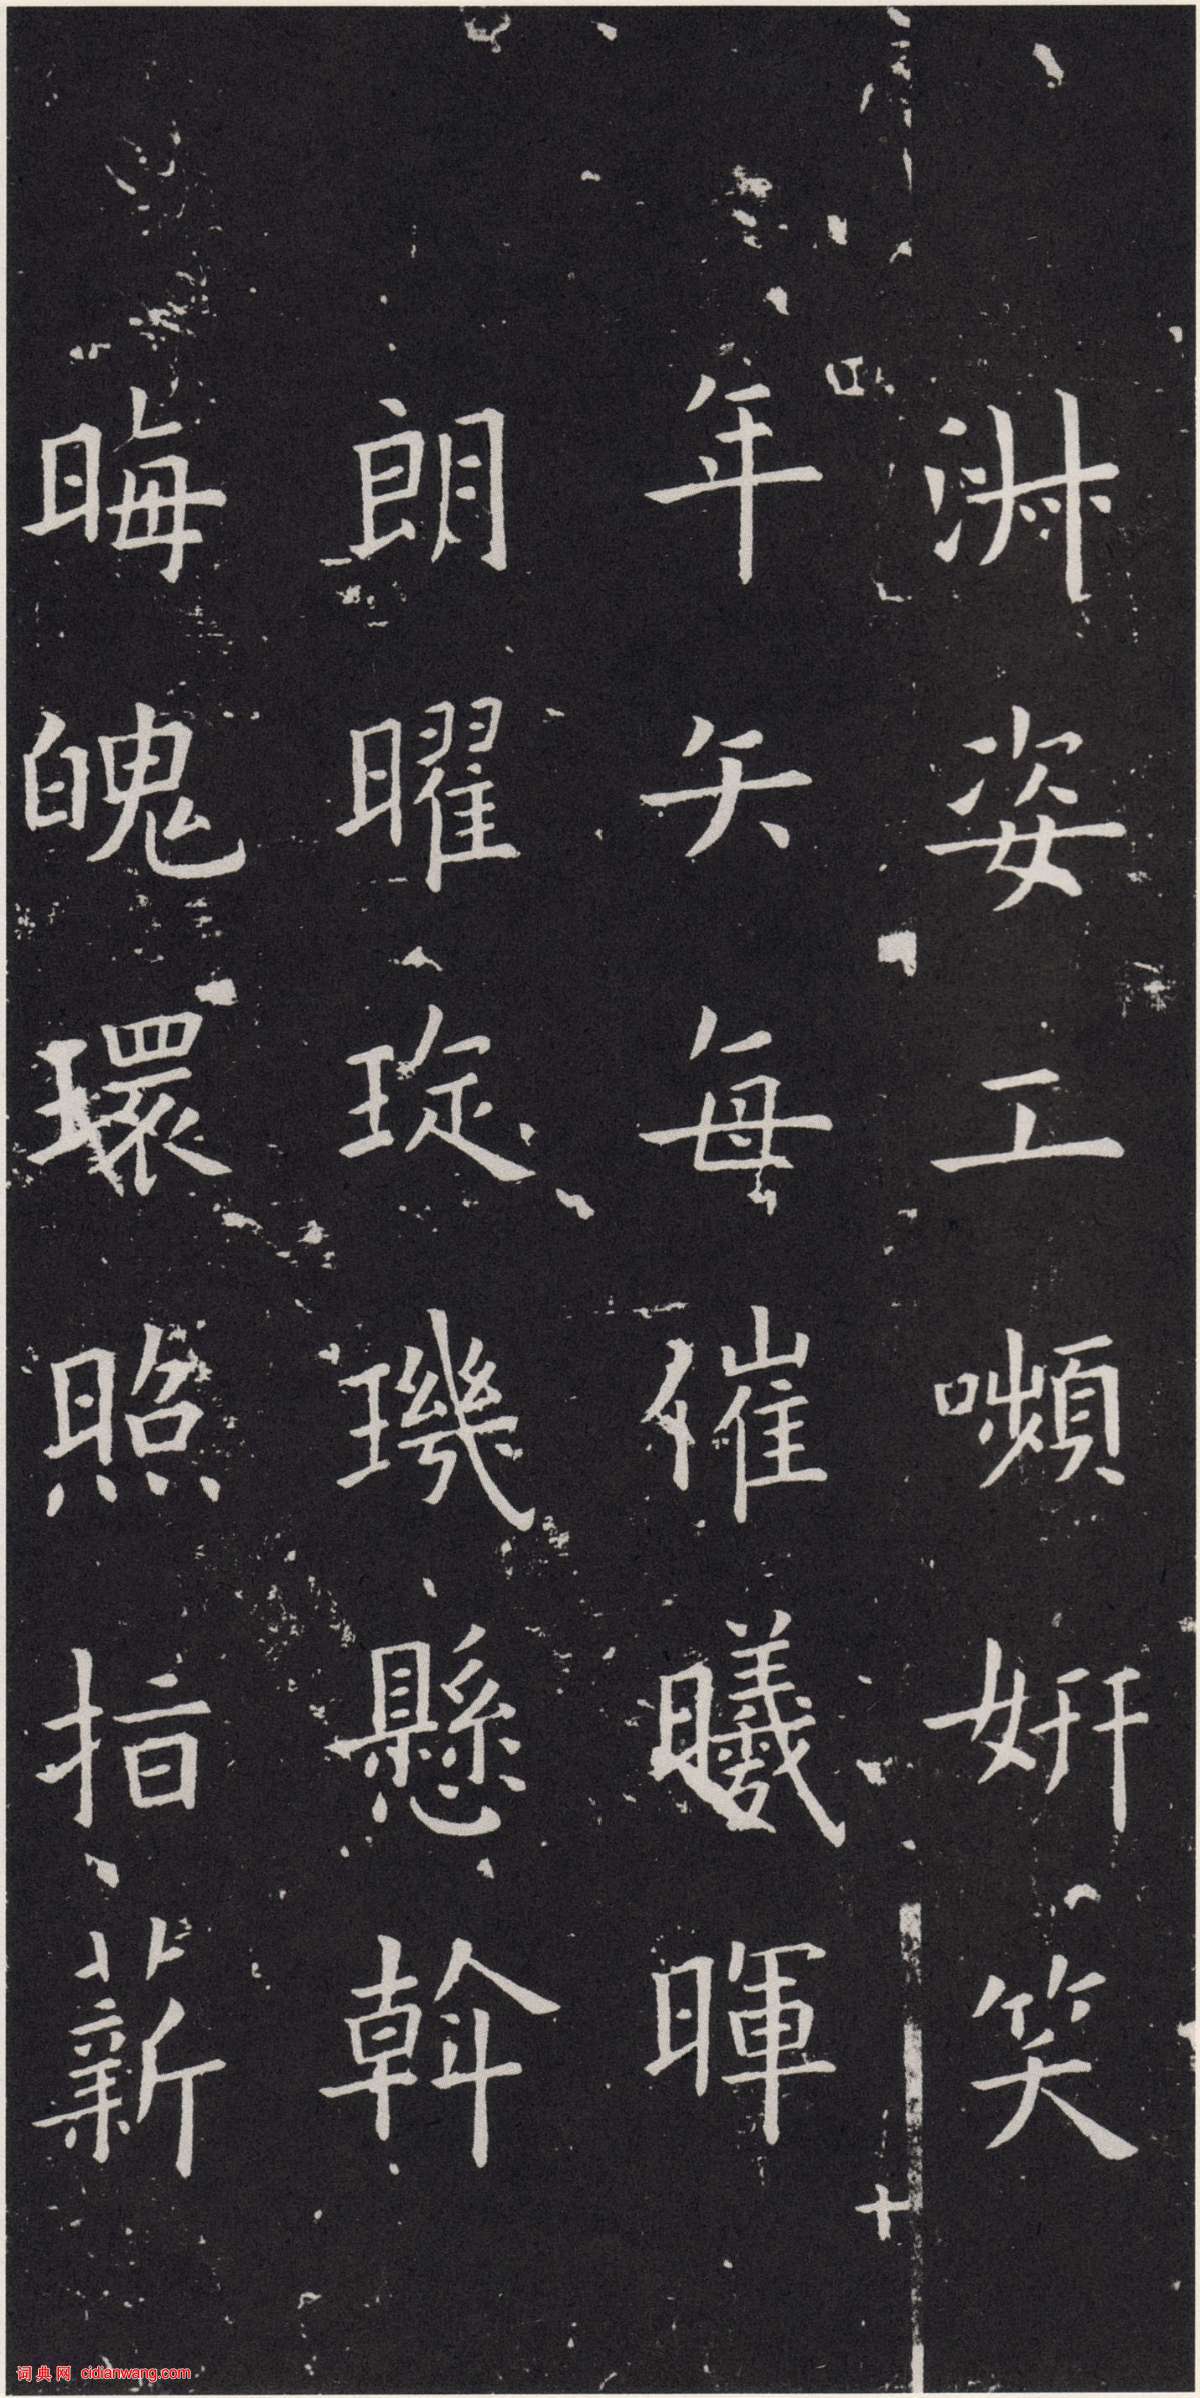 淋姿工嚬姸笑
年矢每催曦暉
朗曜琁璣懸斡
晦魄環照指薪
口
十
词典网 cidianwang.com